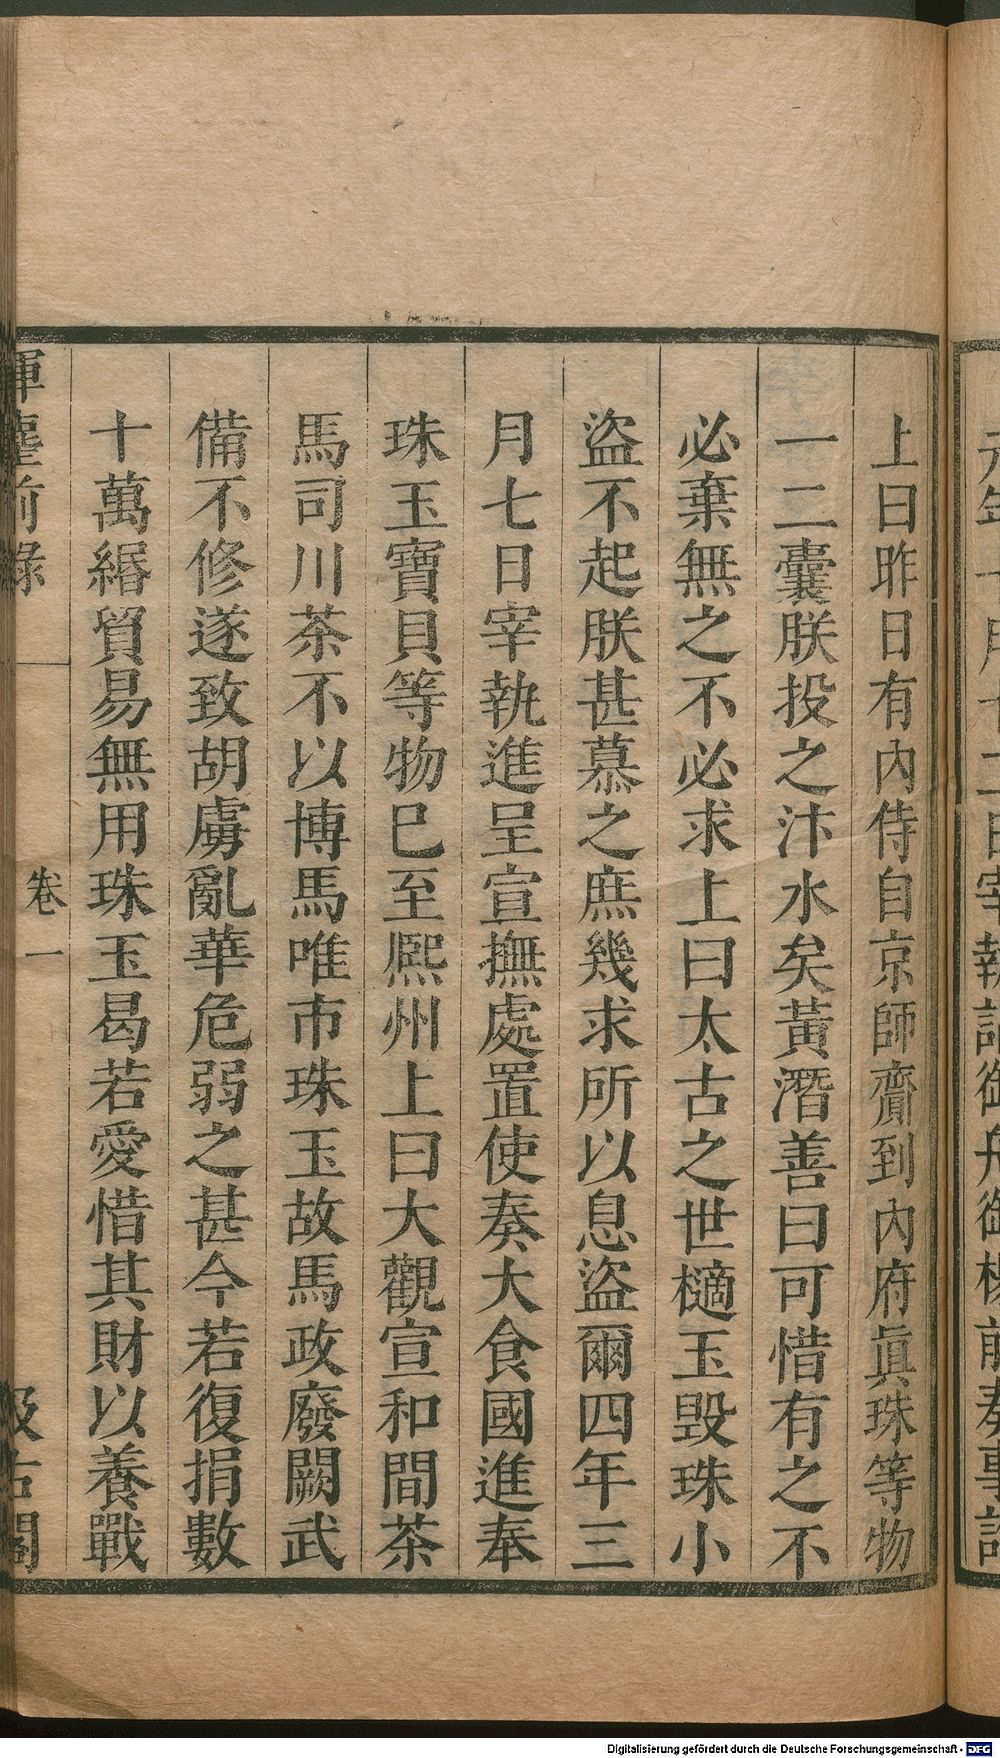 上曰昨日有內侍自京師齎到內府眞珠等物
一二囊朕投之汴水矣黃潛善曰可惜有之不
必棄無之不必求上曰太古之世擿玉毀珠小
盜不起朕甚慕之庶幾求所以息盜爾四年三
月七日宰執進呈宣撫處置使奏大食國進奉
珠玉寶貝等物巳至熈州上曰大觀宣和間茶
馬司川茶不以博馬唯市珠玉故馬政廢闕武
備不修遂致胡虜亂華危弱之甚今若復捐數
十萬緡貿易無用珠玉曷若愛惜其財以養戰
揮麈前錄
卷一
汲古閣
Digitalisierung gefördert durch die Deutsche Forschungsgemeinschaft - DFG